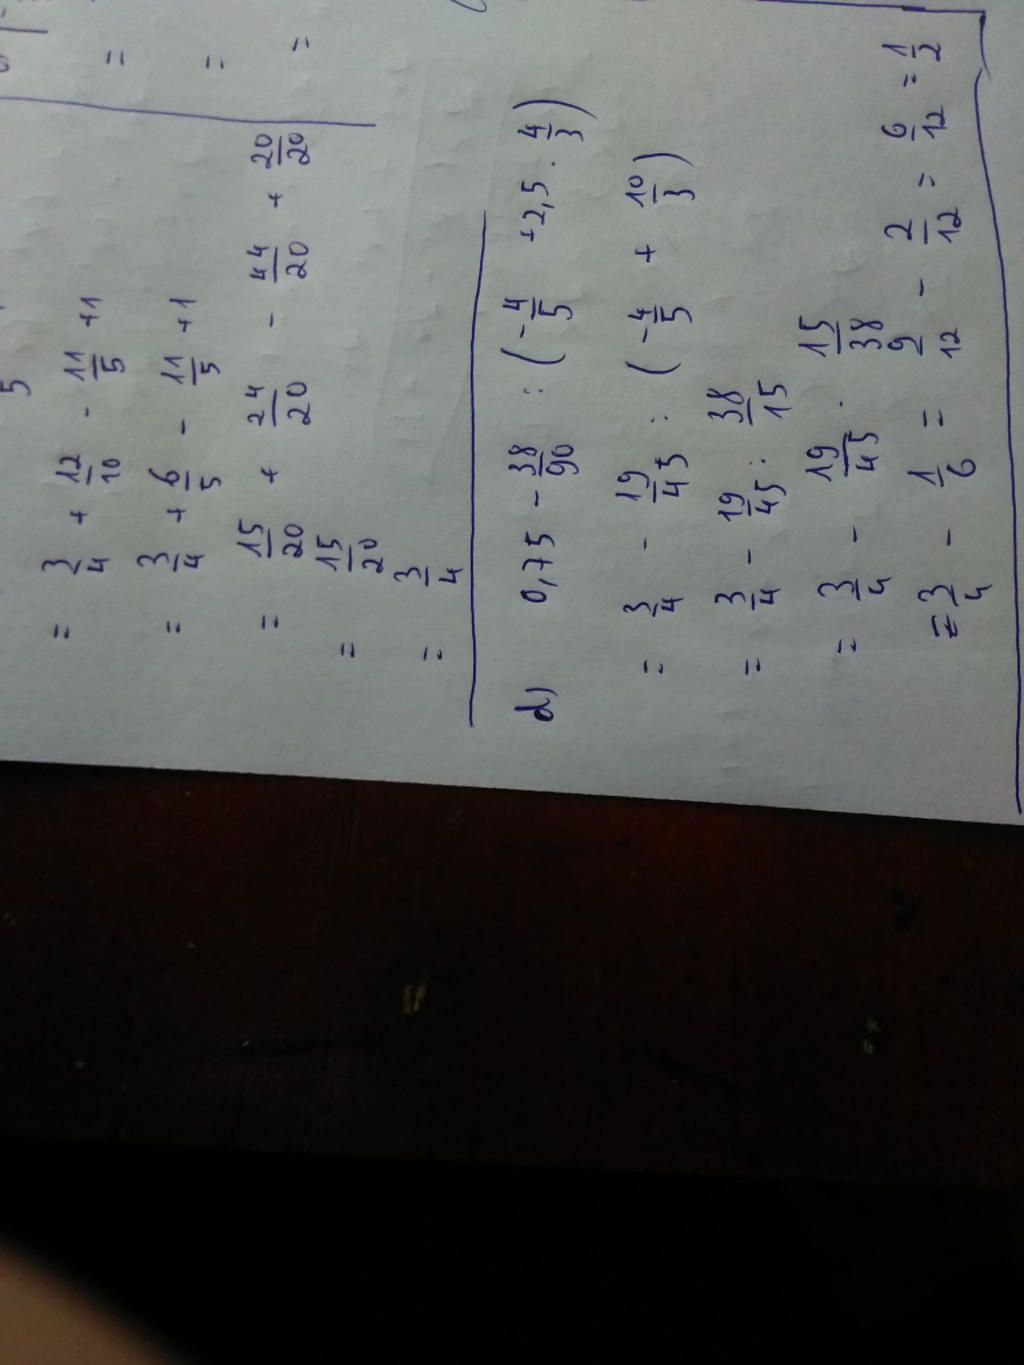 = 3/4 + 12/10 - 11/5 +1
= 3/4 + 6/5 - 11/5 +1
= 15/20 + 24/20 - 44/20 + 20/20
= 15/20
= 3/4
=
=
=
d) 0,75 - 38/90 : (-4/5 +2,5 · 4/3)
= 3/4 - 19/45 : (-4/5 + 10/3)
= 3/4 - 19/45 : 38/15
= 3/4 - 19/45 · 15/38
= 3/4 - 1/6 = 9/12 - 2/12 = 6/12 = 1/2